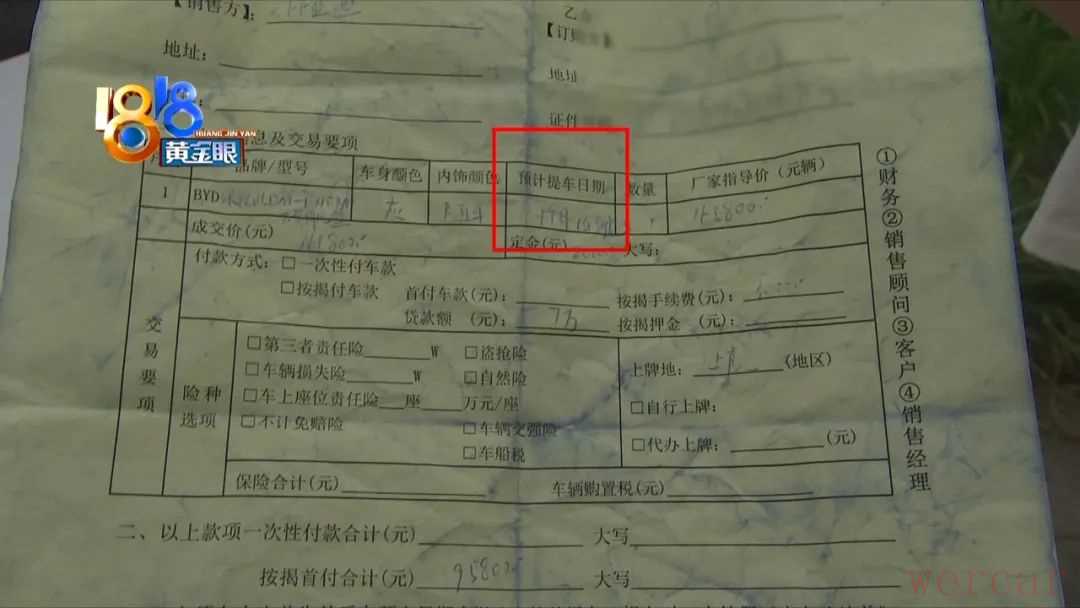 【销售方】:
乙
【订
地址:
地址
证件
1818
HUANG JIN YAN
黄金眼
息及交易要项
品牌/型号 车身颜色 内饰颜色 预计提车日期 数量 厂家指导价(元/辆)
1 BYD 灰 165800
成交价(元) 定金(元) 大写:
付款方式: □一次性付车款
□按揭付车款 首付车款(元): 按揭手续费(元):
贷款额 (元): 7万 按揭押金 (元):
交易要项
险种选项
□第三者责任险 W □盗抢险
□车辆损失险 W □自然险
□车上座位责任险 座 万元/座
□不计免赔险 □车辆交强险
□车船税
上牌地: (地区)
□自行上牌:
□代办上牌: (元)
保险合计(元) 车辆购置税(元)
①财务②销售顾问③客户④销售经理
二、以上款项一次性付款合计(元) 大写
按揭首付合计(元) 95800 大写
wercar